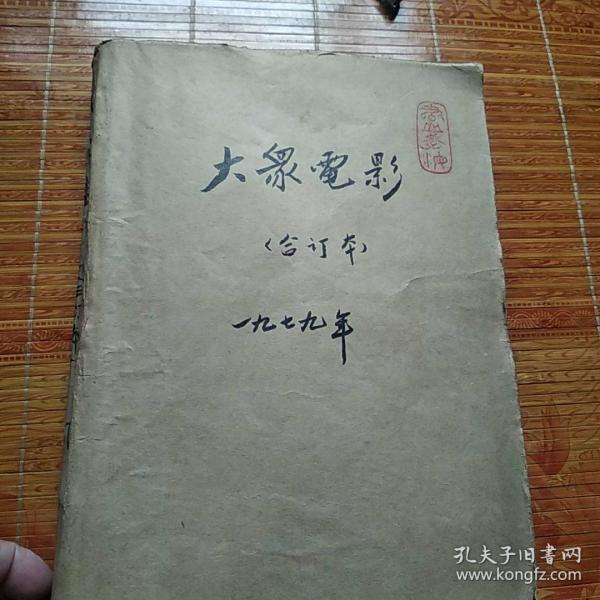 大衆電影
（合订本）
一九七九年
孔夫子旧书网
www.kongfz.com